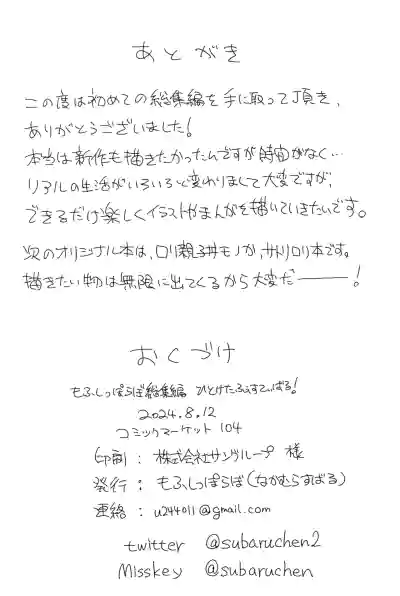 あとがき
この度は初めての総集編を手に取って頂き、
ありがとうございました!
本当は新作も描きたかったんですが時間がなく…
リアルの生活がいろいろと変わりまして大変ですが、
できるだけ楽しくイラストやまんがを描いていきたいです。
次のオリジナル本は、ロリ親子丼モノか、サトリロリ本です。
描きたい物は無限に出てくるから大変だ───!
おくづけ
もふしっぽらぼ総集編 ひとけたふぇすてぃばる!
2024.8.12
コミックマーケット104
印刷: 株式会社サングループ 様
発行: もふしっぽらぼ(なかむらすばる)
連絡: u244011@gmail.com
twitter @subaruchen2
Misskey @subaruchen